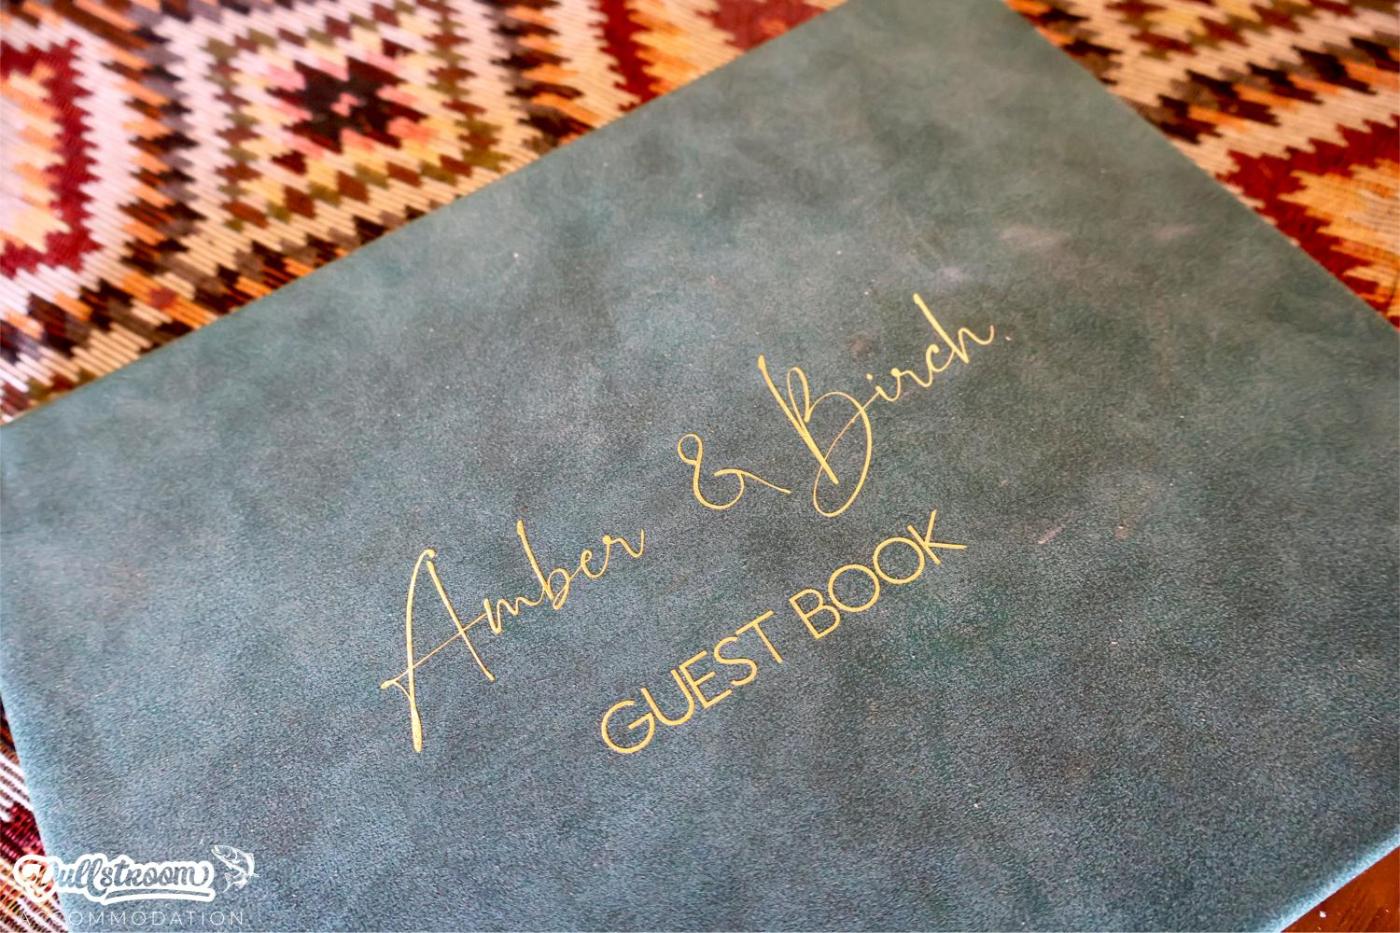 Amber & Birch
GUEST BOOK
Dullstroom
ACCOMMODATION